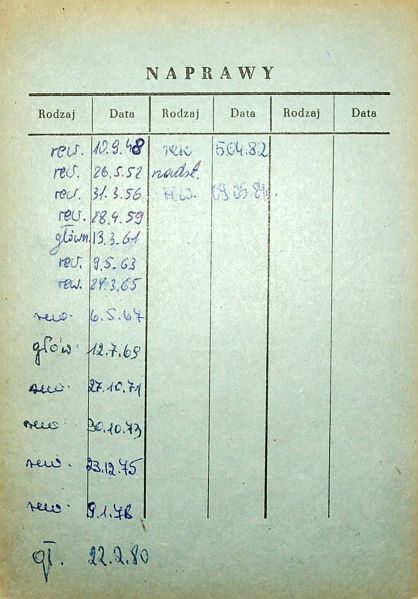 NAPRAWY
Rodzaj Data Rodzaj Data Rodzaj Data
rew. 10.9.48 rew 5.04.82
rew. 26.5.52 nadst.
rew. 31.3.56 rew. 09.05.84
rew. 28.4.59
główn. 13.3.61
rew. 9.5.63
rew. 24.3.65
rew. 6.5.67
głów. 12.7.69
rew. 27.10.71
rew. 30.10.73
rew. 23.12.75
rew. 9.1.78
gł. 22.2.80